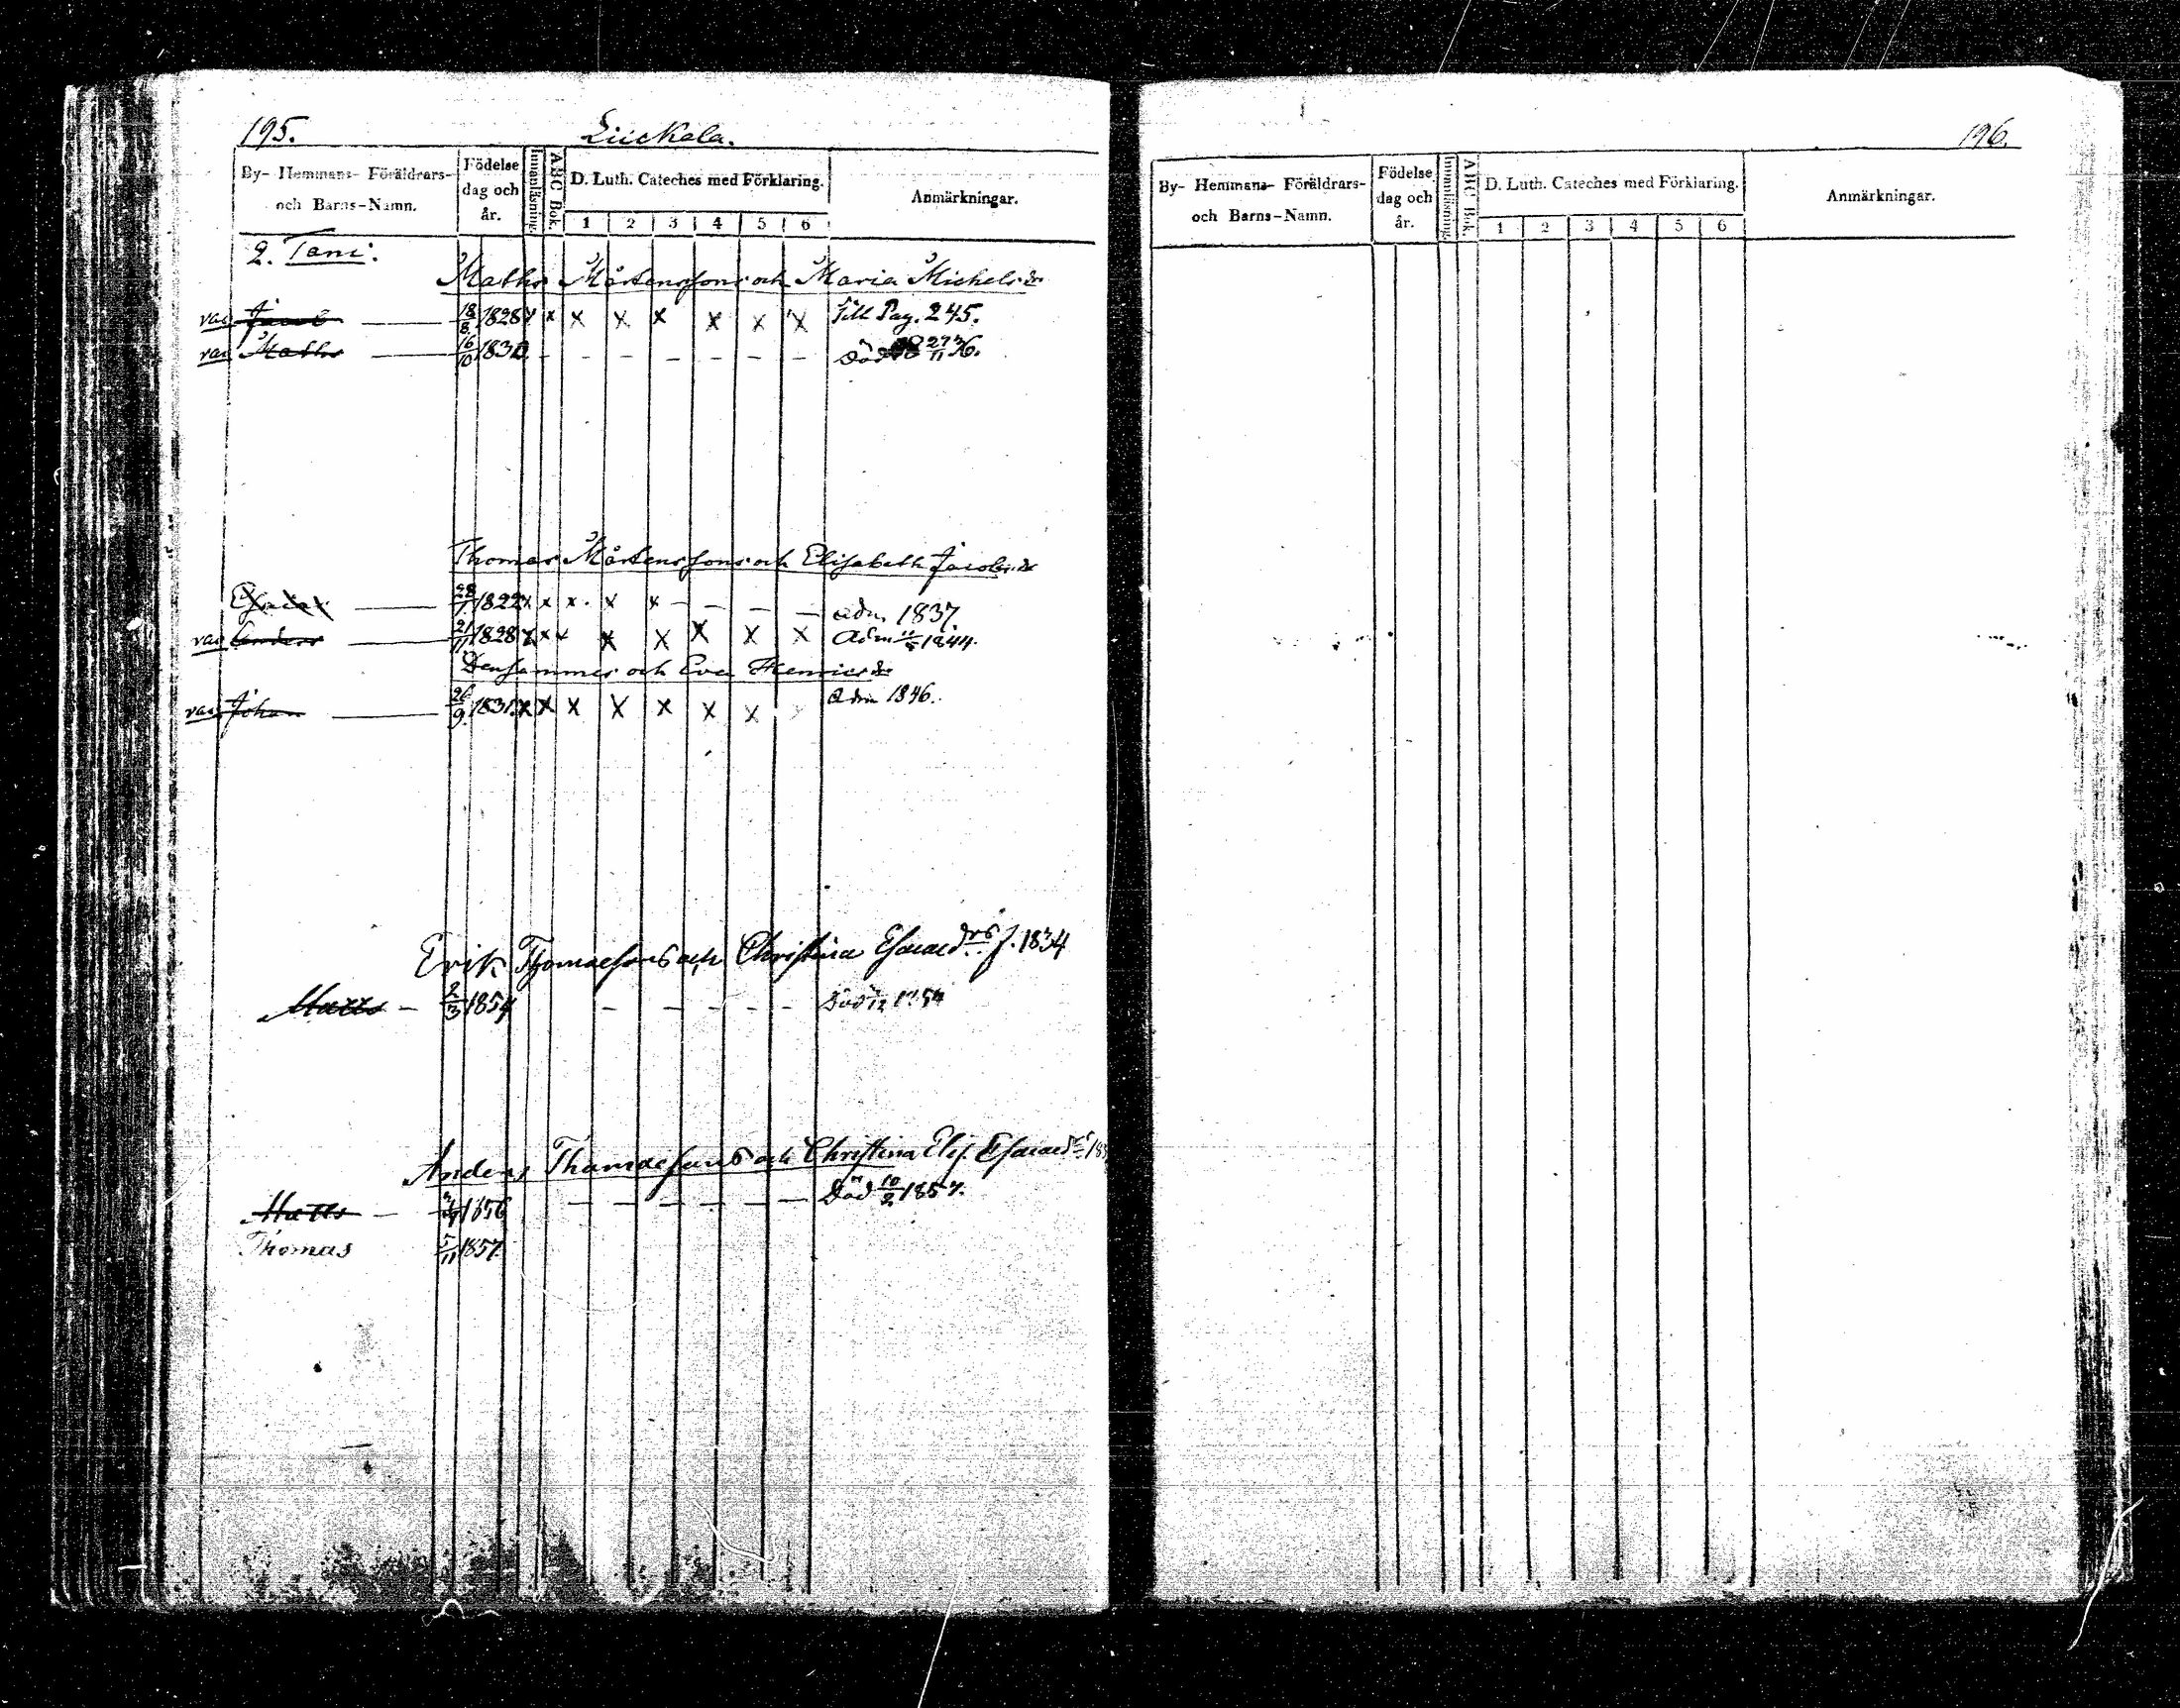 195.
Liickala.
By- Hemmans- Föräldrars- och Barns-Namn.
Födelse dag och år.
Innanläsning.
ABC Bok.
D. Luth. Cateches med Förklaring.
1 2 3 4 5 6
Anmärkningar.
2. Tani.
Maths Mårtenssons och Maria Michelsdr
vac Jacob — 18/8 1828 x x x x x x x x Till Pag. 245.
vac Maths — 16/10 1830 – – – – – – – Död 27/11 36.
Thomas Mårtenssons och Elisabeth Jacobsdr
Esaias — 28/1 1822 x x x x x – – – adm. 1837.
vac Anders — 21/11 1828 x x x x x x x x Adm 1844.
Densammes och Eva Henricsdr
vac Johan — 26/9 1831 x x x x x x x x Adm 1846.
Erik Thomaessons och Christina Esaiaedrs f. 1834
Matts – 2/3 1854 – – – – – Död 1854
Anders Thomaessons och Christina Elis. Esaiaedrs
Matts – 1856 – – – – – – Död 10/2 1857.
Thomas 5/11 1857
196.
By- Hemmans- Föräldrars- och Barns-Namn.
Födelse dag och år.
Innanläsning.
ABC Bok.
D. Luth. Cateches med Förklaring.
1 2 3 4 5 6
Anmärkningar.